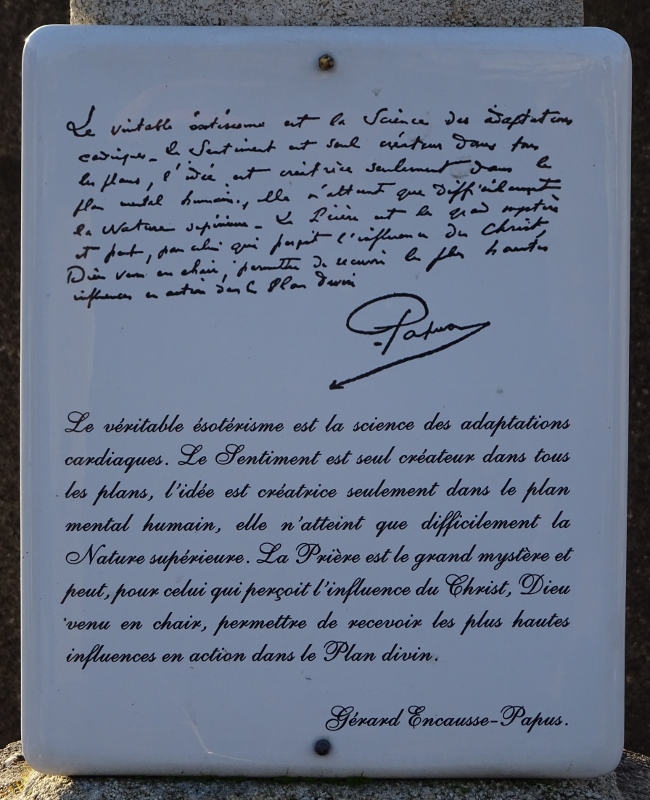 Le véritable ésotérisme est la Science des adaptations
cardiaques - Le Sentiment est seul créateur dans tous
les plans, l'idée est créatrice seulement dans le
plan mental humain, elle n'atteint que difficilement
la Nature supérieure - La Prière est le grand mystère
et peut, pour celui qui perçoit l'influence du Christ,
Dieu venu en chair, permettre de recevoir les plus hautes
influences en action dans le Plan divin
Papus
Le véritable ésotérisme est la science des adaptations
cardiaques. Le Sentiment est seul créateur dans tous
les plans, l'idée est créatrice seulement dans le plan
mental humain, elle n'atteint que difficilement la
Nature supérieure. La Prière est le grand mystère et
peut, pour celui qui perçoit l'influence du Christ, Dieu
venu en chair, permettre de recevoir les plus hautes
influences en action dans le Plan divin.
Gérard Encausse-Papus.